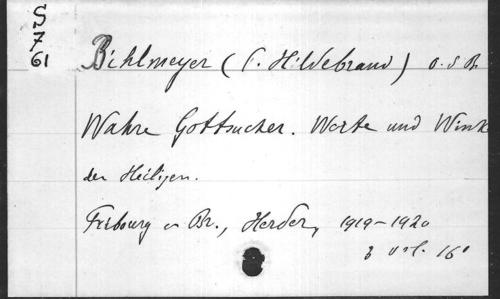 S
7
61
Bihlmeyer (P. Hildebrand) O. S. B.
Wahre Gottsucher. Worte und Wink
der Heiligen.
Fribourg Br., Herder, 1919-1920
3 vol. 16°